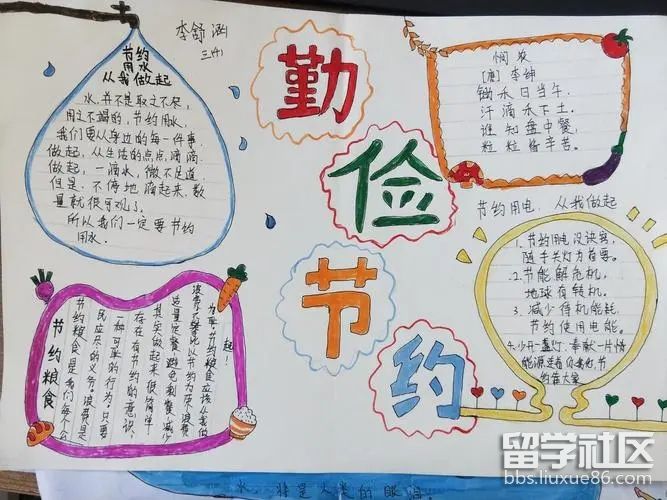 李舒涵
三(4)
节约
用水
从我做起
水,并不是取之不尽,
用之不竭的,节约用水,
我们要从身边的每一件事
做起,从生活的点点滴滴
做起,一滴水,微不足道
但是,不停地滴起来,数
量就很可观了。
所以我们一定要节约
用水。
勤
俭
节
约
悯农
[唐]李绅
锄禾日当午,
汗滴禾下土。
谁知盘中餐,
粒粒皆辛苦。
节约用电,从我做起
1.节约用电没诀窍,
随手关灯为首要。
2.节能解危机,
地球有转机。
3.减少待机能耗,
节约使用电能。
4.少开一盏灯,奉献一片情
能源连着你我他,节
约靠大家
节约粮食
节约粮食是我们每个公
民应尽的义务,浪费是
一种可耻的行为,只要
存在有节约的意识,
其实做起来很简单
适量定餐,避免剩餐,减少
浪费,不攀比以节约为荣浪费
为耻,节约粮食应该从我做
起!
水 将是人类的眼泪。
留学社区
bbs.liuxue86.com